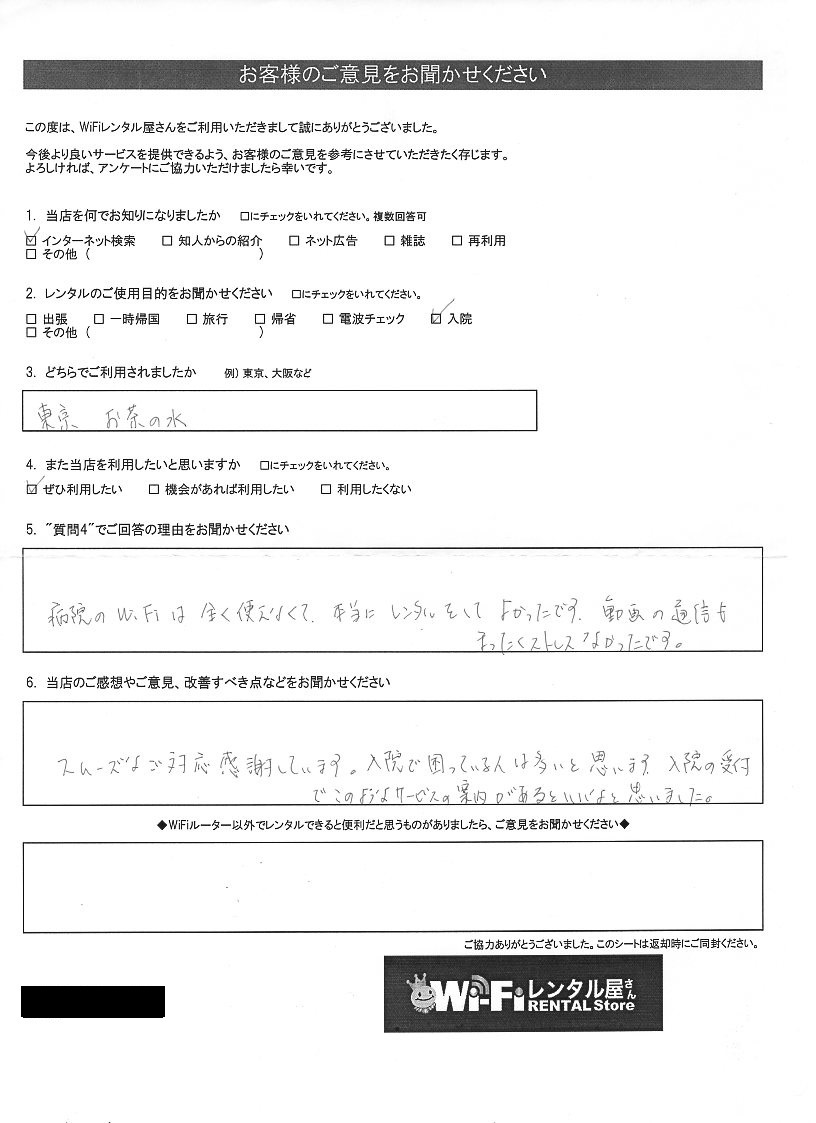 お客様のご意見をお聞かせください
この度は、WiFiレンタル屋さんをご利用いただきまして誠にありがとうございました。
今後より良いサービスを提供できるよう、お客様のご意見を参考にさせていただきたく存じます。
よろしければ、アンケートにご協力いただけましたら幸いです。
1. 当店を何でお知りになりましたか □にチェックをいれてください。複数回答可
☑ インターネット検索 □ 知人からの紹介 □ ネット広告 □ 雑誌 □ 再利用
□ その他 ( )
2. レンタルのご使用目的をお聞かせください □にチェックをいれてください。
□ 出張 □ 一時帰国 □ 旅行 □ 帰省 □ 電波チェック ☑ 入院
□ その他 ( )
3. どちらでご利用されましたか 例) 東京、大阪など
東京 お茶の水
4. また当店を利用したいと思いますか □にチェックをいれてください。
☑ ぜひ利用したい □ 機会があれば利用したい □ 利用したくない
5. "質問4"でご回答の理由をお聞かせください
病院のWiFiは全く使えなくて、本当にレンタルをしてよかったです。動画の通信も
まったくストレスなかったです。
6. 当店のご感想やご意見、改善すべき点などをお聞かせください
スムーズなご対応感謝しています。入院で困っている人は多いと思います。入院の受付
でこのようなサービスの案内があるといいなと思いました。
◆WiFiルーター以外でレンタルできると便利だと思うものがありましたら、ご意見をお聞かせください◆
ご協力ありがとうございました。このシートは返却時にご同封ください。
Wi-Fiレンタル屋さん
RENTAL Store